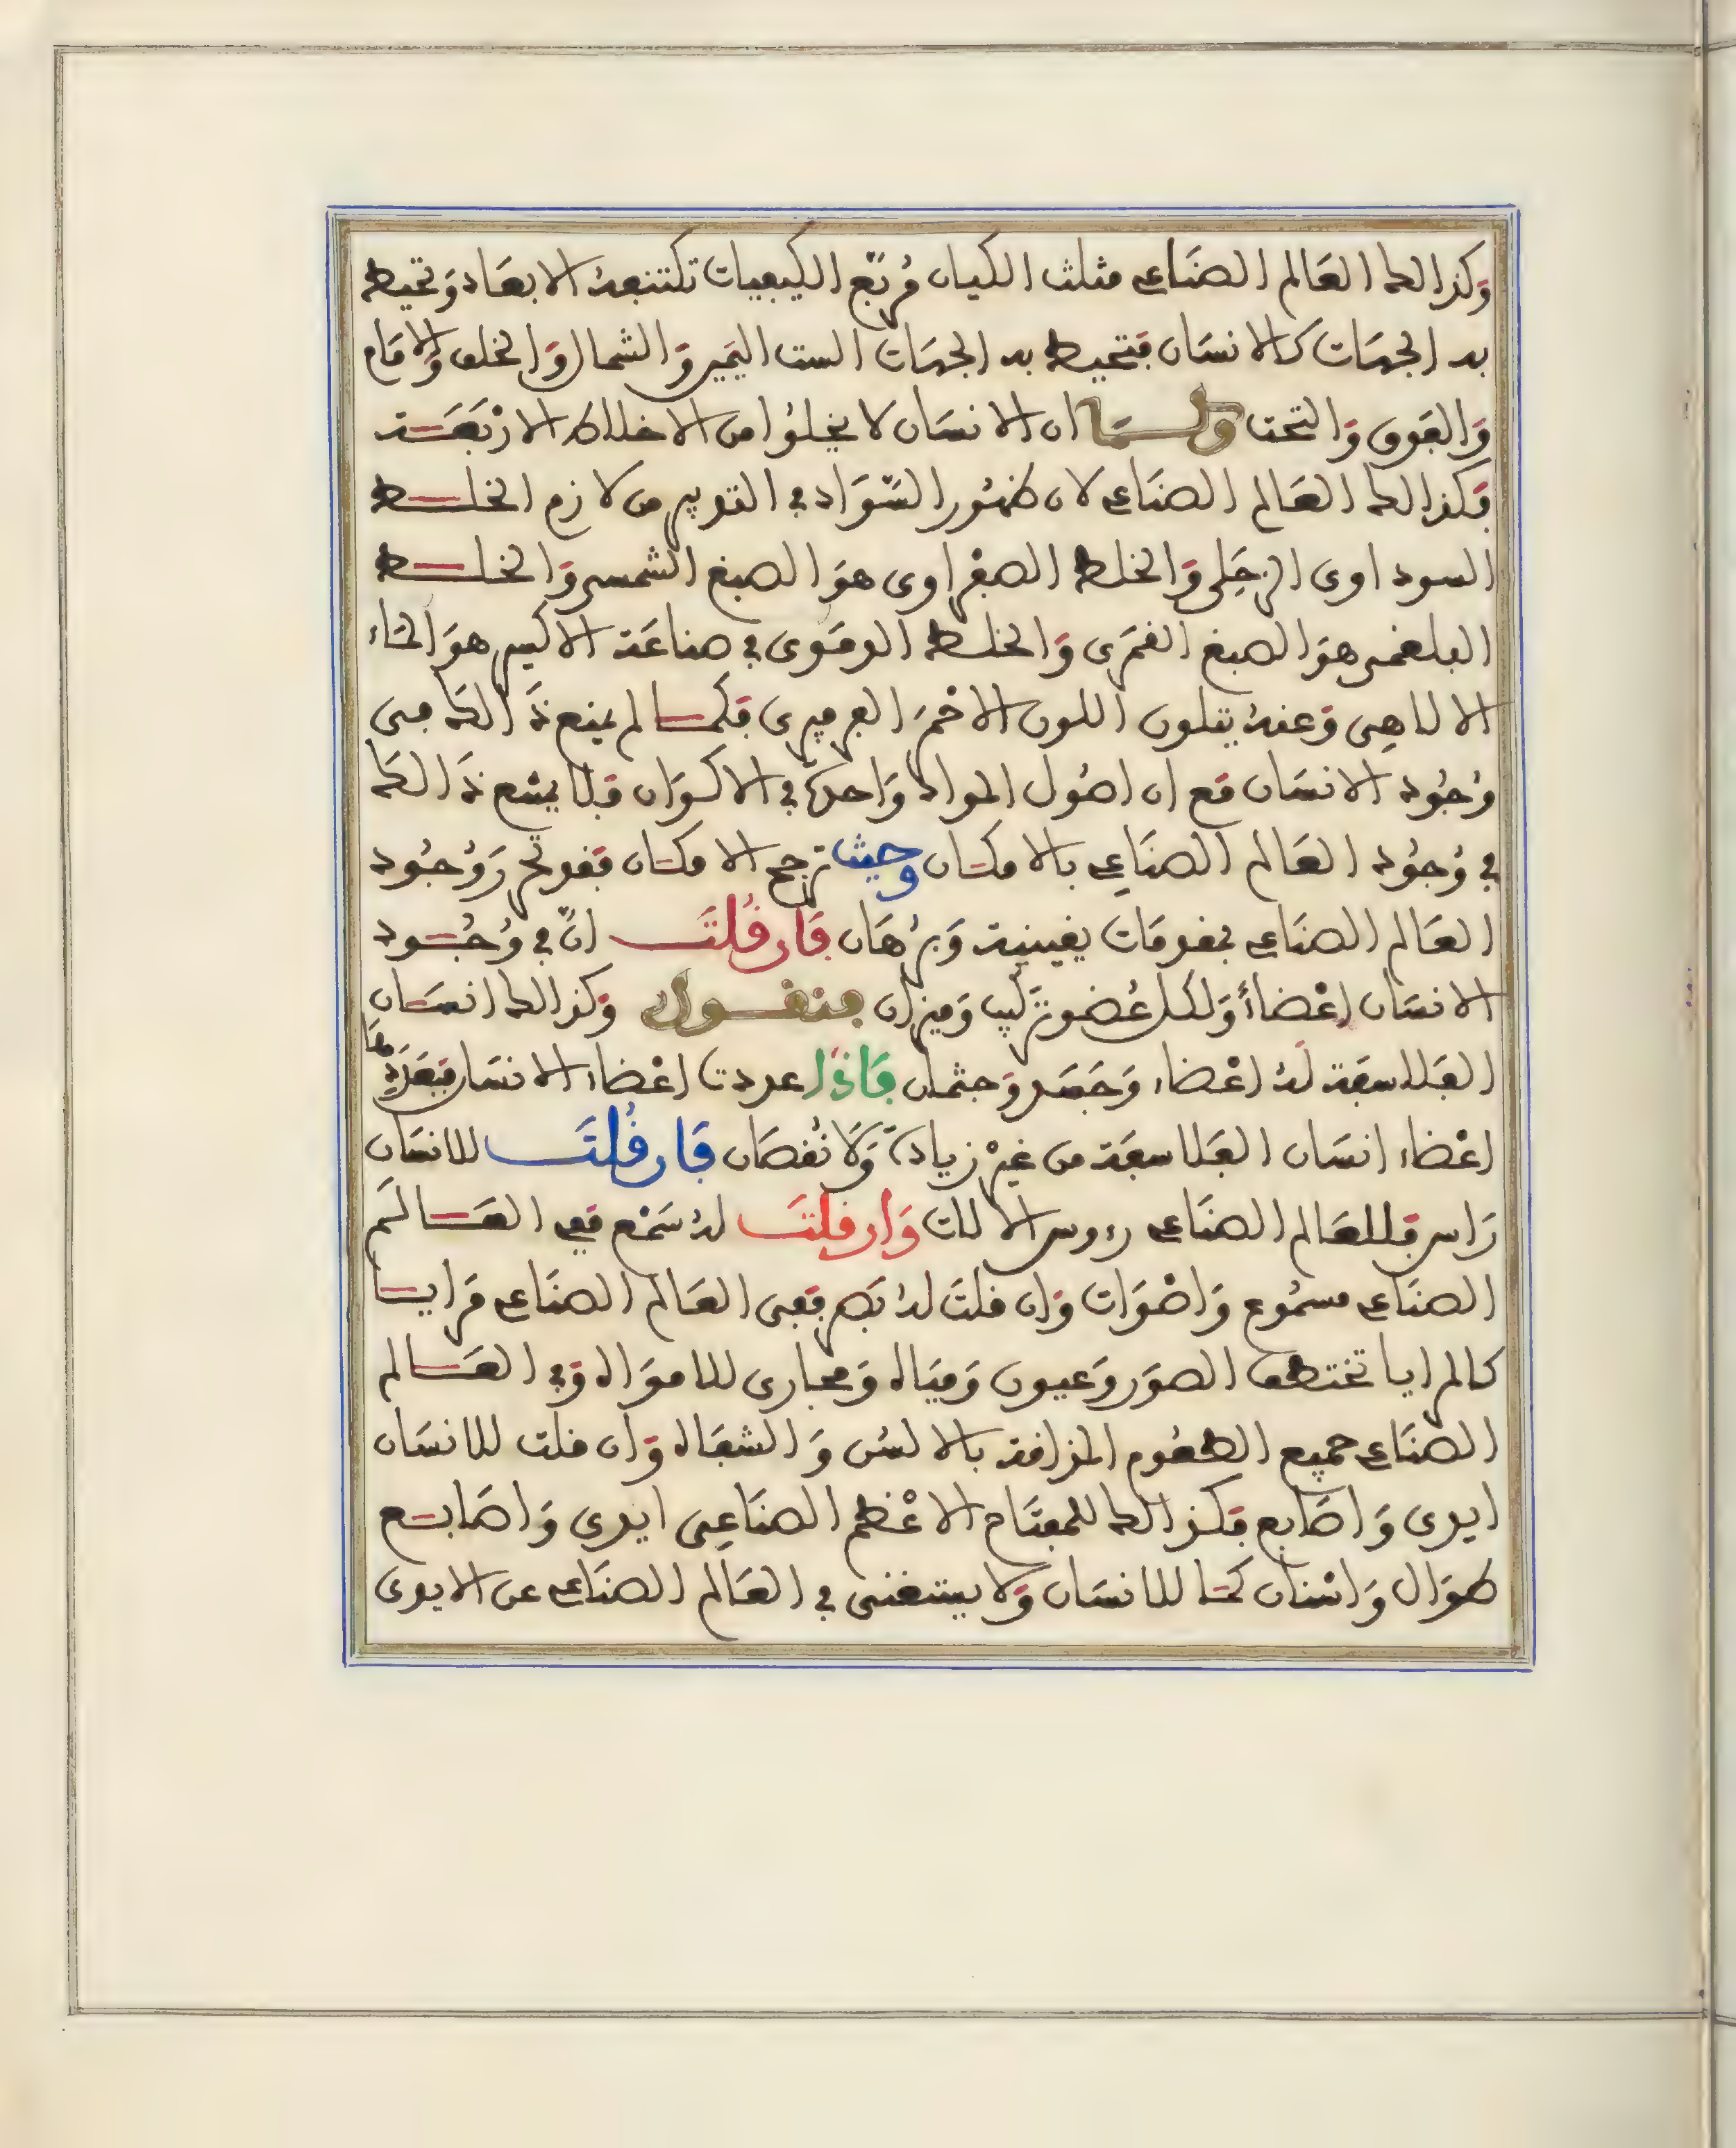 وكذالك العالم الصناعي مثلث الكيان مربّع الكيفيات تكتنفه الابعاد وتحيط
به الجهات كالانسان فتحيط به الجهات الست اليمين والشمال والخلف والامام
والفوق والتحت ولما ان الانسان لا يخلوا من الاخلاط الاربعة
فكذالك العالم الصناعي لان ظهور السواد في التدبير من لازم الخلط
السوداوى الزحلي والخلط الصفراوى هو الصبغ الشمسي والخلط
البلغمي هو الصبغ القمري والخلط الدموى في صناعة الاكسير هو الماء
الالاهي وعنده يتلون اللون الاحمر الفرفيرى فكما لم يمتنع ذالك في
وجود الانسان مع ان اصول المواد واحدة في الاكوان فلا يمتنع ذالك
في وجود العالم الصناعي بالامكان وحيث ترجح الامكان فقد تحرر وجود
العالم الصناعي بمقدمات يقينية وبرهان فان قلت انّ في وجود
الانسان اعضاءً ولكل عضو تركيب وميزان فنقول وكذالك انسان
الفلاسفة له اعضاء وجسد وجثمان فاذا عددت اعضاء الانسان فبعددها
اعضاء انسان الفلاسفة من غير زيادة ولا نقصان فان قلت للانسان
راس فللعالم الصناعي رءوس الالات وان قلت له سمع ففي العالم
الصناعي مسموع واصوات وان قلت له بصر ففي العالم الصناعي مرايا
كالمرايا تختطف الصور وعيون ومياه ومجارى للامواه وفي العالم
الصناعي جميع الطعوم المذاقة بالالسن والشفاه وان قلت للانسان
ايدى واصابع فكذالك للمفتاح الاعظم الصناعي ايدى واصابع
طوال واسنان كما للانسان ولا يستغنى في العالم الصناعي عن الايدى